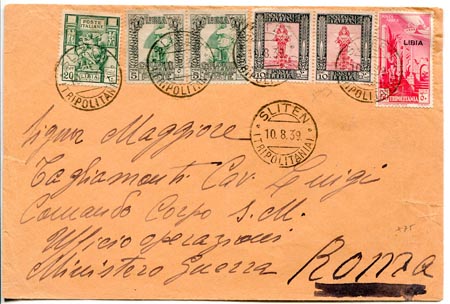 POSTE ITALIANE
LIBIA
LIBIA
20
5
5
10
10
LIBIA
TRIPOLITANIA
SLITEN
10.8.39
(TRIPOLITANIA)
Signor Maggiore
Tagliamonti Cav. Luigi
Comando Corpo S. M.
Ufficio operazioni
Ministero Guerra Roma